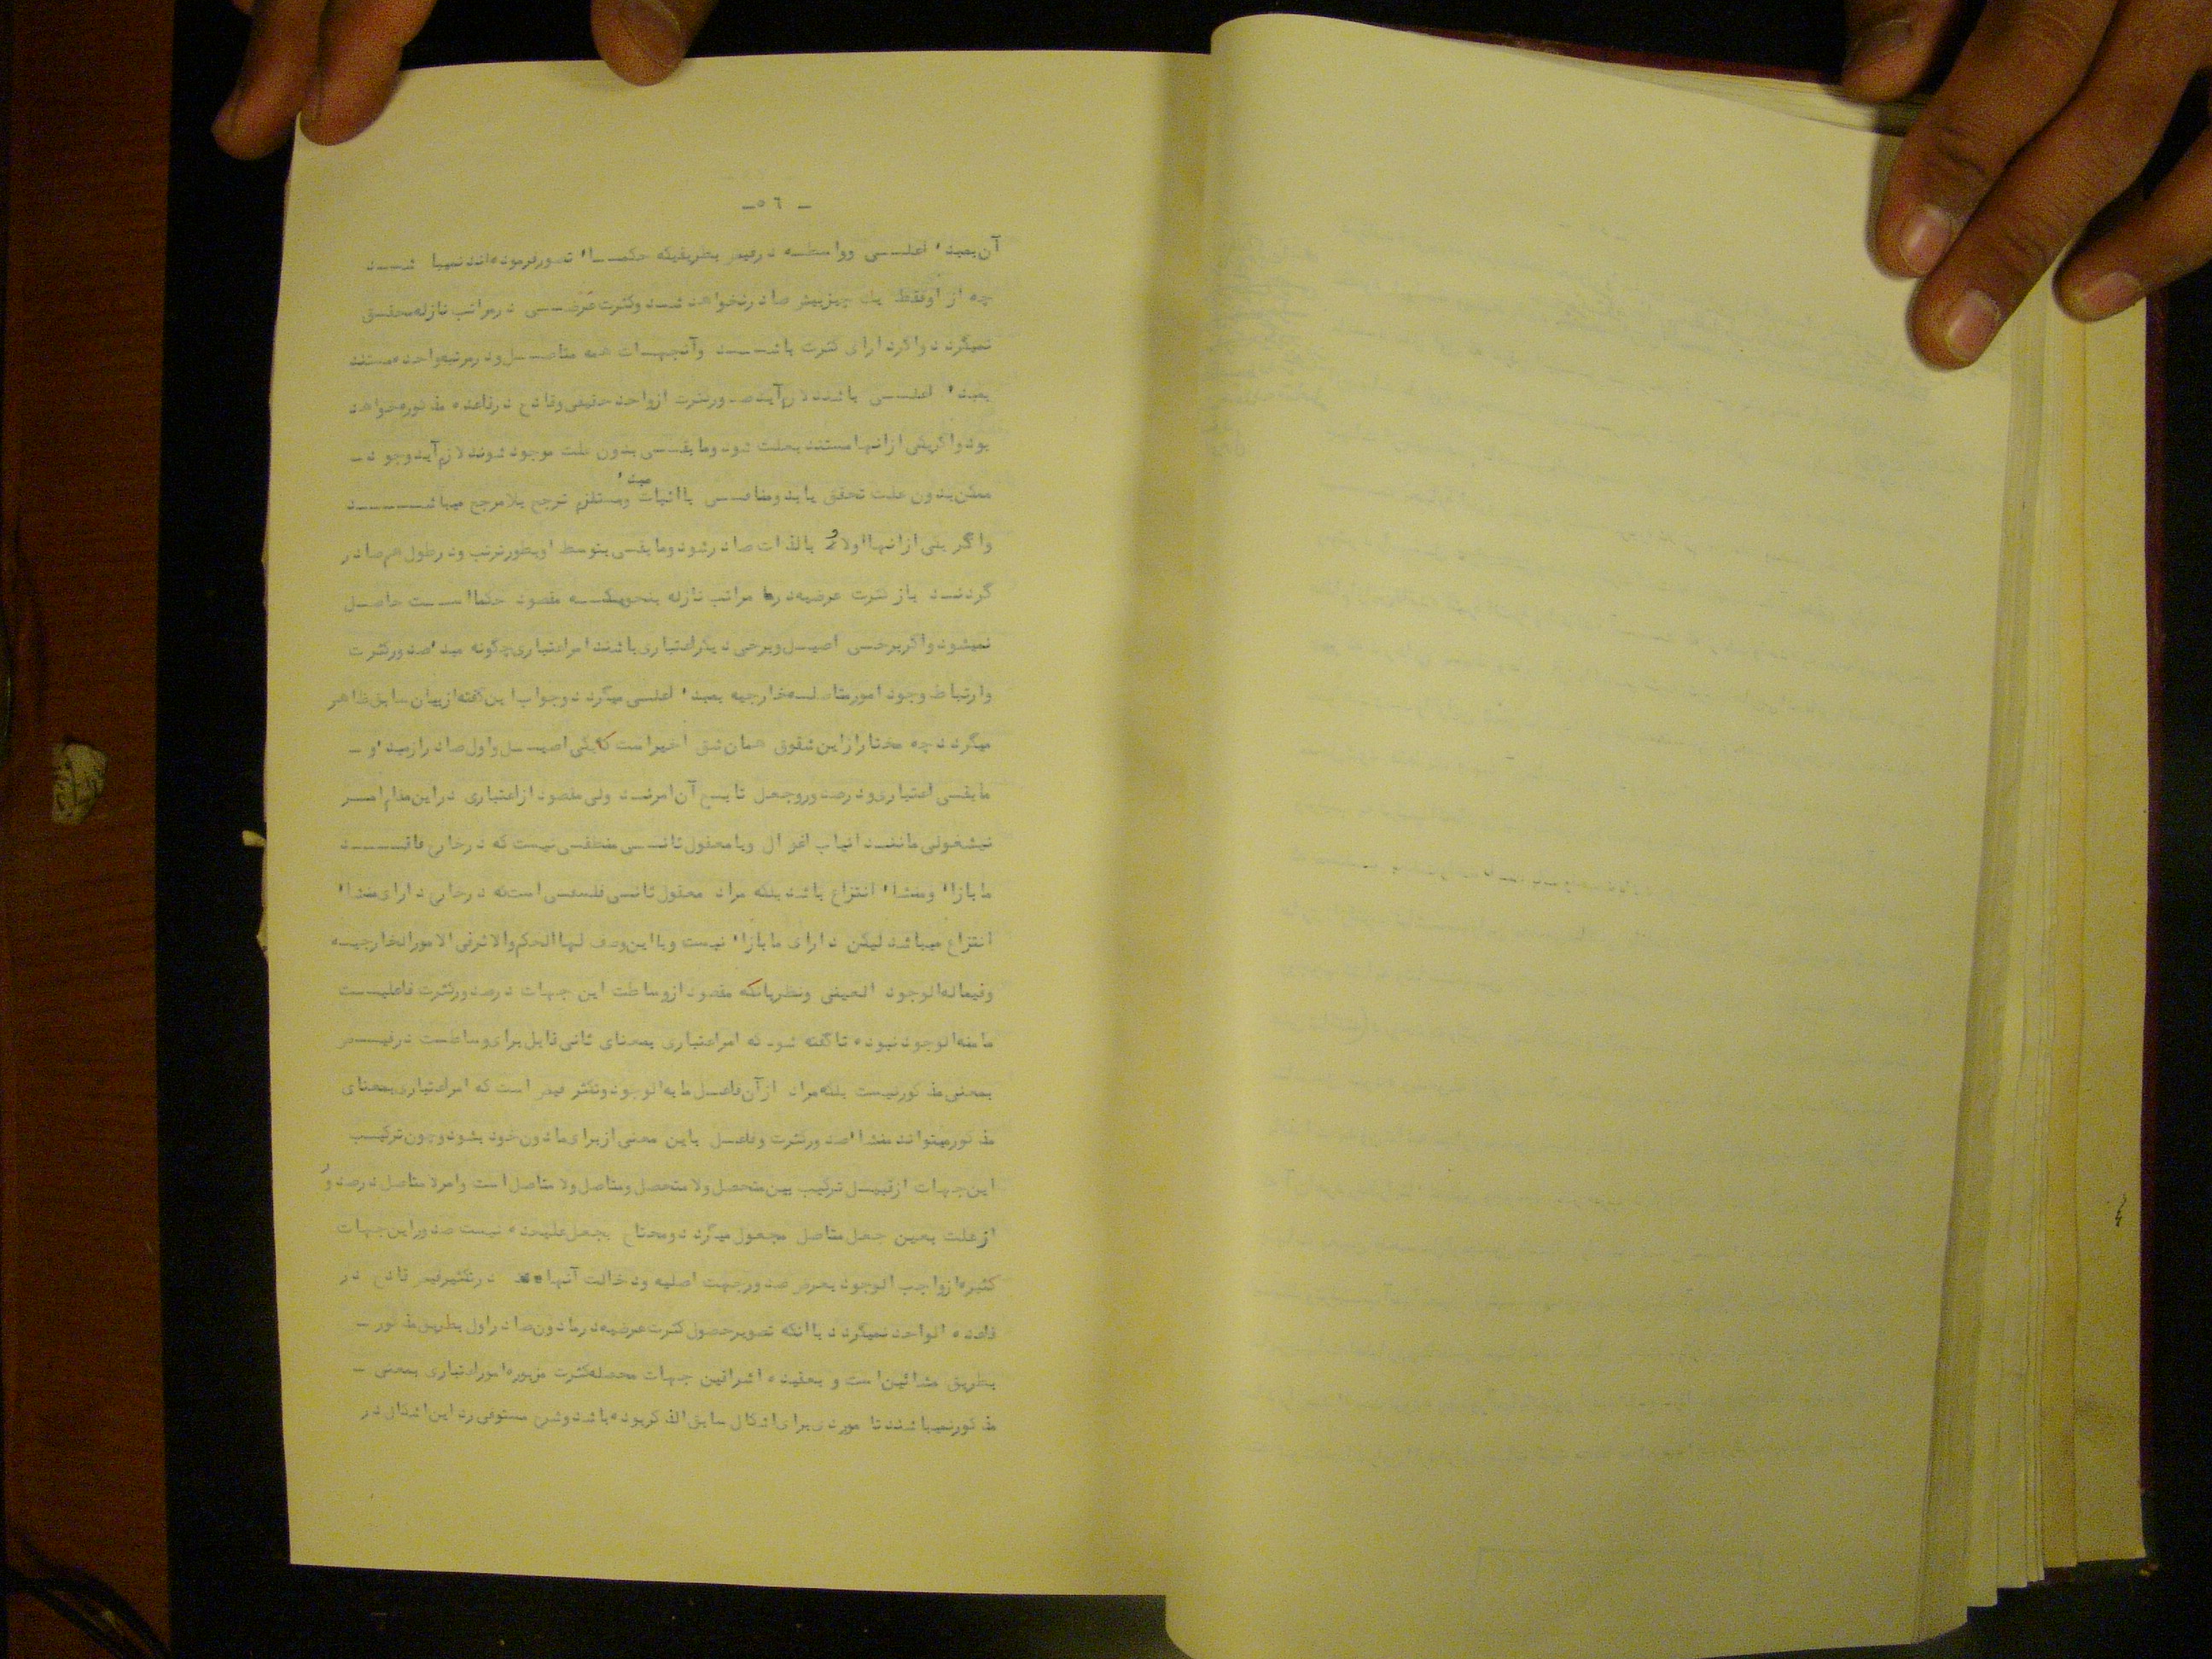 ـ ٥٦ ـ
آن بمبدء اعلــی وواسطــه در فیض بطریقیکه حکمــاء تصور فرموده اند تمیبا شــد
چه از او فقط یك چیز بیش صادر نخواهد شــد وکثرت عرضــی در مراتب نازله محقــق
نمیگردد و اگر دارای کثرت باشــد وآنجهــات همه متاصــل ودر مرتبه واحده مستند
بمبدء اعلــی باشند لازم آید صدور کثرت از واحد حقیقی وقادح در قاعده مذکوره خواهد
بود واگر یکی از انها مستند بعلت شود ومابقــی بدون علت موجود شوند لازم آید وجود ـ
ممکن بدون علت تحقق یابد ومنافــی با اثبات مبدء ومستلزم ترجح بلا مرجح میباشــد
واگر یکی از انها اولا و بالذات صادر شود ومابقی بتوسط او بطور ترتب ودر طول هم صادر
گردنــد باز کثرت عرضیه در مراتب نازله بنحویکــه مقصود حکما اســت حاصــل
نمیشود واگر برخــی اصیــل وبرخی دیگر اعتباری باشند امر اعتباری چگونه مبدء صدور کثرت
وارتباط وجود امور متاصلــه خارجیه بمبدء اعلــی میگردد وجواب این گفته از بیان سابق ظاهر
میگردد چه مختار از این شقوق همان شق اخیر است که یکی اصیــل واول صادر از مبدء و ـ
مابقــی اعتباری ودر صدور وجعل تابــع آن امرنــد ولی مقصود از اعتباری در این مقام امــر
نیشغولی ماننــد انیاب اغوال ویا معقول ثانــی منطقــی نیست که در خارج فاقــد
مابازاء ومنشاء انتزاع باشد بلکه مراد معقول ثانــی فلسفــی است که در خارج دارای منشاء
انتزاع میباشد لیکن دارای مابازاء نیست وبا این وصف لها الحکم والاثر فی الامور الخارجیــه
وفیما له الوجود العینی ونظر بانکه مقصود از وساطت این جهات در صدور کثرت فاعلیــت
ما منه الوجود نبوده تا گفته شود که امر اعتباری بمعنای ثانی قابل برای وساطت در فیــض
بمعنی مذکور نیست بلکه مراد از آن فاعــل ما به الوجود وتکثر فیض است که امر اعتباری بمعنای
مذکور میتواند منشاء صدور کثرت وفاعــل باین معنی از برای مادون خود بشود وچون ترکیــب
این جهات از قبیــل ترکیب بین متحصل ولا متحصل ومتاصل ولا متاصل است وامر لا متاصل در صدور
از علت بعین جعل متاصل مجعول میگردد ومحتاج بجعل علیحده نیست صدور این جهات
کثیره از واجب الوجود بعرض صدور جهت اصلیه ودخالت آنها در تکثیر فیض قادح در
قاعده الواحد نمیگردد با انکه تصویر حصول کثرت عرضیه در مادون صادر اول بطریق مذکور ـ
بطریق مشائین است و بعقیده اشراقین جهات محصله کثرت مزبوره امور اعتباری بمعنی ـ
مذکور نمیباشند تا موردی برای اشکال سابق الذکر بوده باشد وشرح مستوفی رد این اشکال در